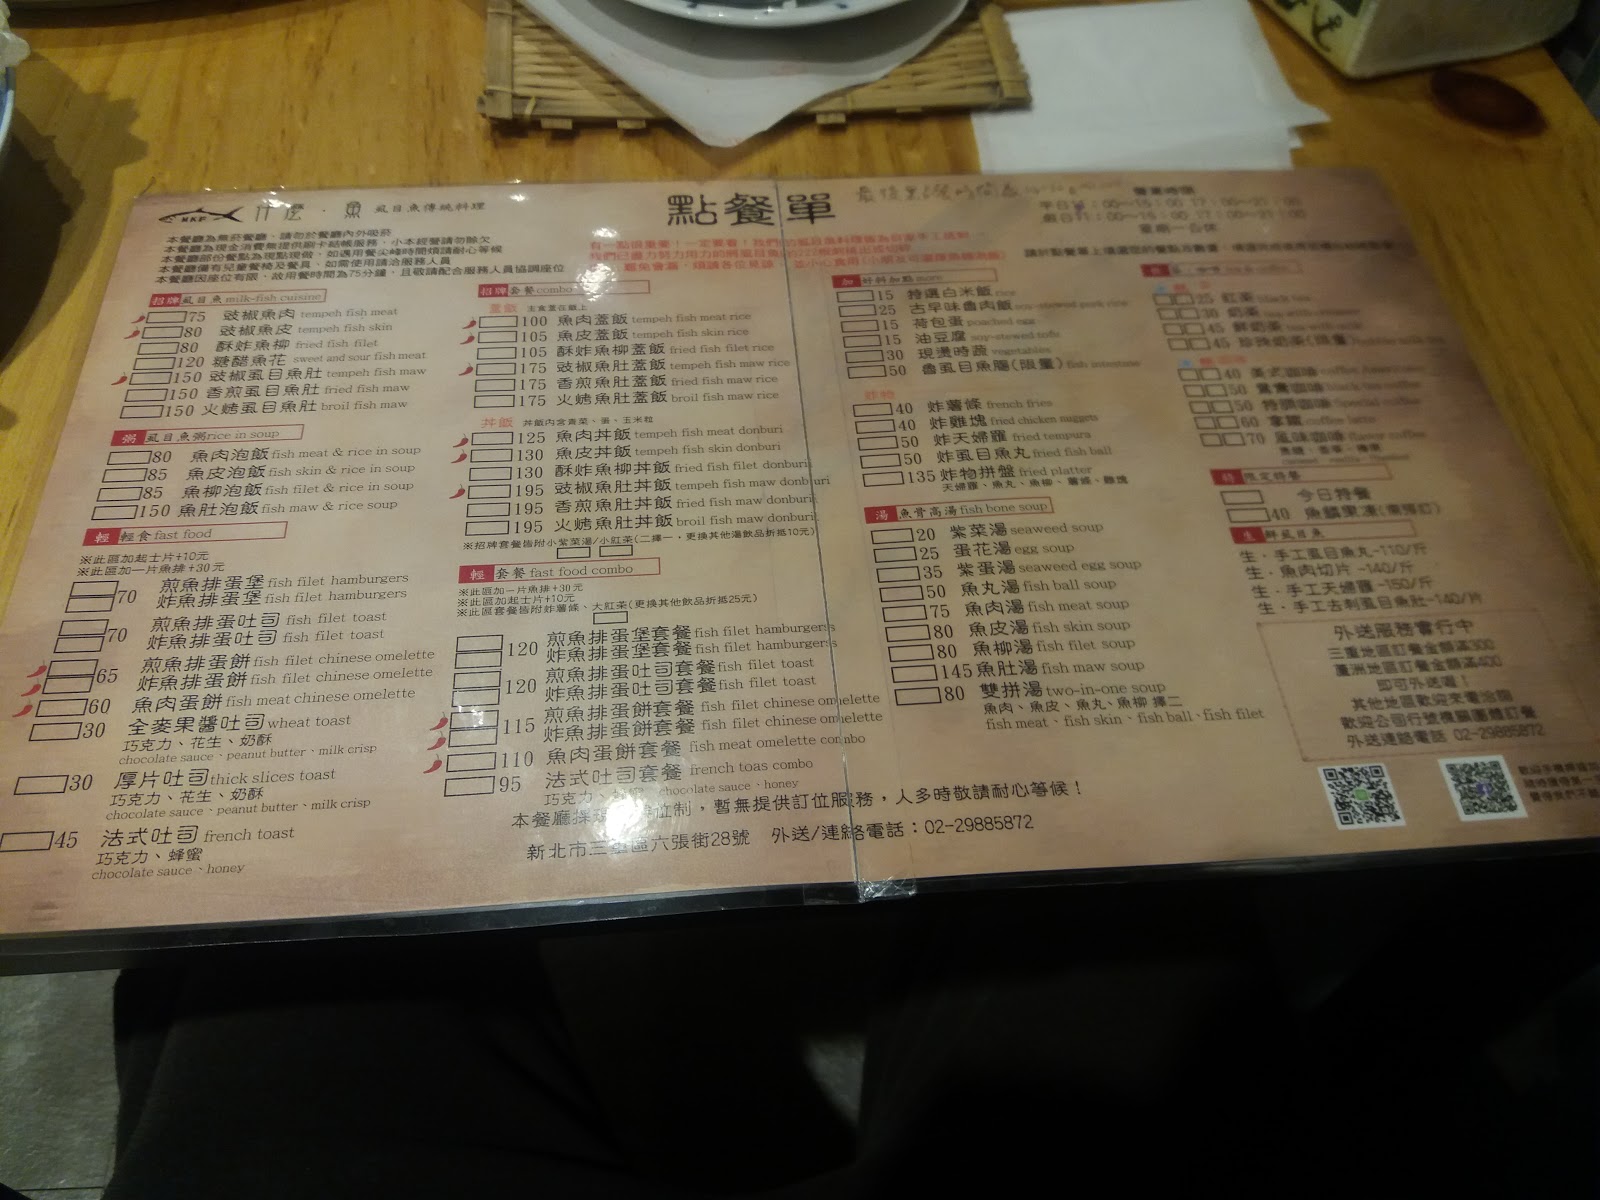 MKF 什麼．魚 虱目魚傳統料理
點餐單
營業時間
本餐廳為無菸餐廳、請勿於餐廳內外吸菸
本餐廳為現金消費無提供刷卡結帳服務，小本經營請勿賒欠
本餐廳部份餐點為現點現做，如遇用餐尖峰時間煩請耐心等候
本餐廳備有兒童餐椅及餐具、如需使用請洽服務人員
本餐廳因座位有限，故用餐時間為75分鐘，且敬請配合服務人員協調座位
招牌 虱目魚 milk-fish cuisine
75 豉椒魚肉 tempeh fish meat
80 豉椒魚皮 tempeh fish skin
80 酥炸魚柳 fried fish filet
120 糖醋魚花 sweet and sour fish meat
150 豉椒虱目魚肚 tempeh fish maw
150 香煎虱目魚肚 fried fish maw
150 火烤虱目魚肚 broil fish maw
粥 虱目魚粥 rice in soup
80 魚肉泡飯 fish meat & rice in soup
85 魚皮泡飯 fish skin & rice in soup
85 魚柳泡飯 fish filet & rice in soup
150 魚肚泡飯 fish maw & rice soup
輕 輕食 fast food
※此區加起士片+10元
※此區加一片魚排+30元
70 煎魚排蛋堡 fish filet hamburgers
炸魚排蛋堡 fish filet hamburgers
70 煎魚排蛋吐司 fish filet toast
炸魚排蛋吐司 fish filet toast
65 煎魚排蛋餅 fish filet chinese omelette
炸魚排蛋餅 fish filet chinese omelette
60 魚肉蛋餅 fish meat chinese omelette
30 全麥果醬吐司 wheat toast
巧克力、花生、奶酥
chocolate sauce、peanut butter、milk crisp
30 厚片吐司 thick slices toast
巧克力、花生、奶酥
chocolate sauce、peanut butter、milk crisp
45 法式吐司 french toast
巧克力、蜂蜜
chocolate sauce、honey
招牌 套餐 combo
蓋飯 主食蓋在飯上
100 魚肉蓋飯 tempeh fish meat rice
105 魚皮蓋飯 tempeh fish skin rice
105 酥炸魚柳蓋飯 fried fish filet rice
175 豉椒魚肚蓋飯 tempeh fish maw rice
175 香煎魚肚蓋飯 fried fish maw rice
175 火烤魚肚蓋飯 broil fish maw rice
丼飯 丼飯內含青菜、蛋、玉米粒
125 魚肉丼飯 tempeh fish meat donburi
130 魚皮丼飯 tempeh fish skin donburi
130 酥炸魚柳丼飯 fried fish filet donburi
195 豉椒魚肚丼飯 tempeh fish maw donburi
195 香煎魚肚丼飯 fried fish maw donburi
195 火烤魚肚丼飯 broil fish maw donburi
※招牌套餐皆附小紫菜湯/小紅茶(二擇一，更換其他湯飲品折抵10元)
輕 套餐 fast food combo
※此區加一片魚排+30元
※此區加起士片+10元
※此區套餐皆附炸薯條、大紅茶(更換其他飲品折抵25元)
120 煎魚排蛋堡套餐 fish filet hamburgers
炸魚排蛋堡套餐 fish filet hamburgers
120 煎魚排蛋吐司套餐 fish filet toast
炸魚排蛋吐司套餐 fish filet toast
115 煎魚排蛋餅套餐 fish filet chinese omelette
炸魚排蛋餅套餐 fish filet chinese omelette
110 魚肉蛋餅套餐 fish meat omelette combo
95 法式吐司套餐 french toas combo
巧克力、蜂蜜 chocolate sauce、honey
加 好料加點 more
15 特選白米飯 rice
25 古早味魯肉飯 soy-stewed pork rice
15 荷包蛋 poached egg
15 油豆腐 soy-stewed tofu
30 現燙時蔬 vegetables
50 魯虱目魚腸(限量) fish intestine
炸物
40 炸薯條 french fries
40 炸雞塊 fried chicken nuggets
50 炸天婦羅 fried tempura
50 炸虱目魚丸 fried fish ball
135 炸物拼盤 fried platter
天婦羅、魚丸、魚柳、薯條、雞塊
湯 魚骨高湯 fish bone soup
20 紫菜湯 seaweed soup
25 蛋花湯 egg soup
35 紫蛋湯 seaweed egg soup
50 魚丸湯 fish ball soup
75 魚肉湯 fish meat soup
80 魚皮湯 fish skin soup
80 魚柳湯 fish filet soup
145 魚肚湯 fish maw soup
80 雙拼湯 two-in-one soup
魚肉、魚皮、魚丸、魚柳 擇二
fish meat、fish skin、fish ball、fish filet
25 紅茶 black tea
30 奶茶
45 鮮奶茶
45 珍珠奶茶(限量)
40 美式咖啡
50 鴛鴦咖啡
50 特調咖啡 Special coffee
60 拿鐵 coffee latte
70 風味咖啡 flavor coffee
特 限定特餐
今日特餐
40 魚鱗果凍(需預訂)
生 鮮虱目魚
生．手工虱目魚丸-110/斤
生．魚肉切片 -140/斤
生．手工天婦羅 -150/斤
生．手工去刺虱目魚肚-140/片
外送服務實行中
三重地區訂餐金額滿300
蘆洲地區訂餐金額滿400
即可外送喔！
其他地區歡迎來電洽詢
歡迎公司行號機關團體訂餐
外送連絡電話 02-29885872
位制，暫無提供訂位服務，人多時敬請耐心等候！
新北市三重區六張街28號 外送/連絡電話：02-29885872